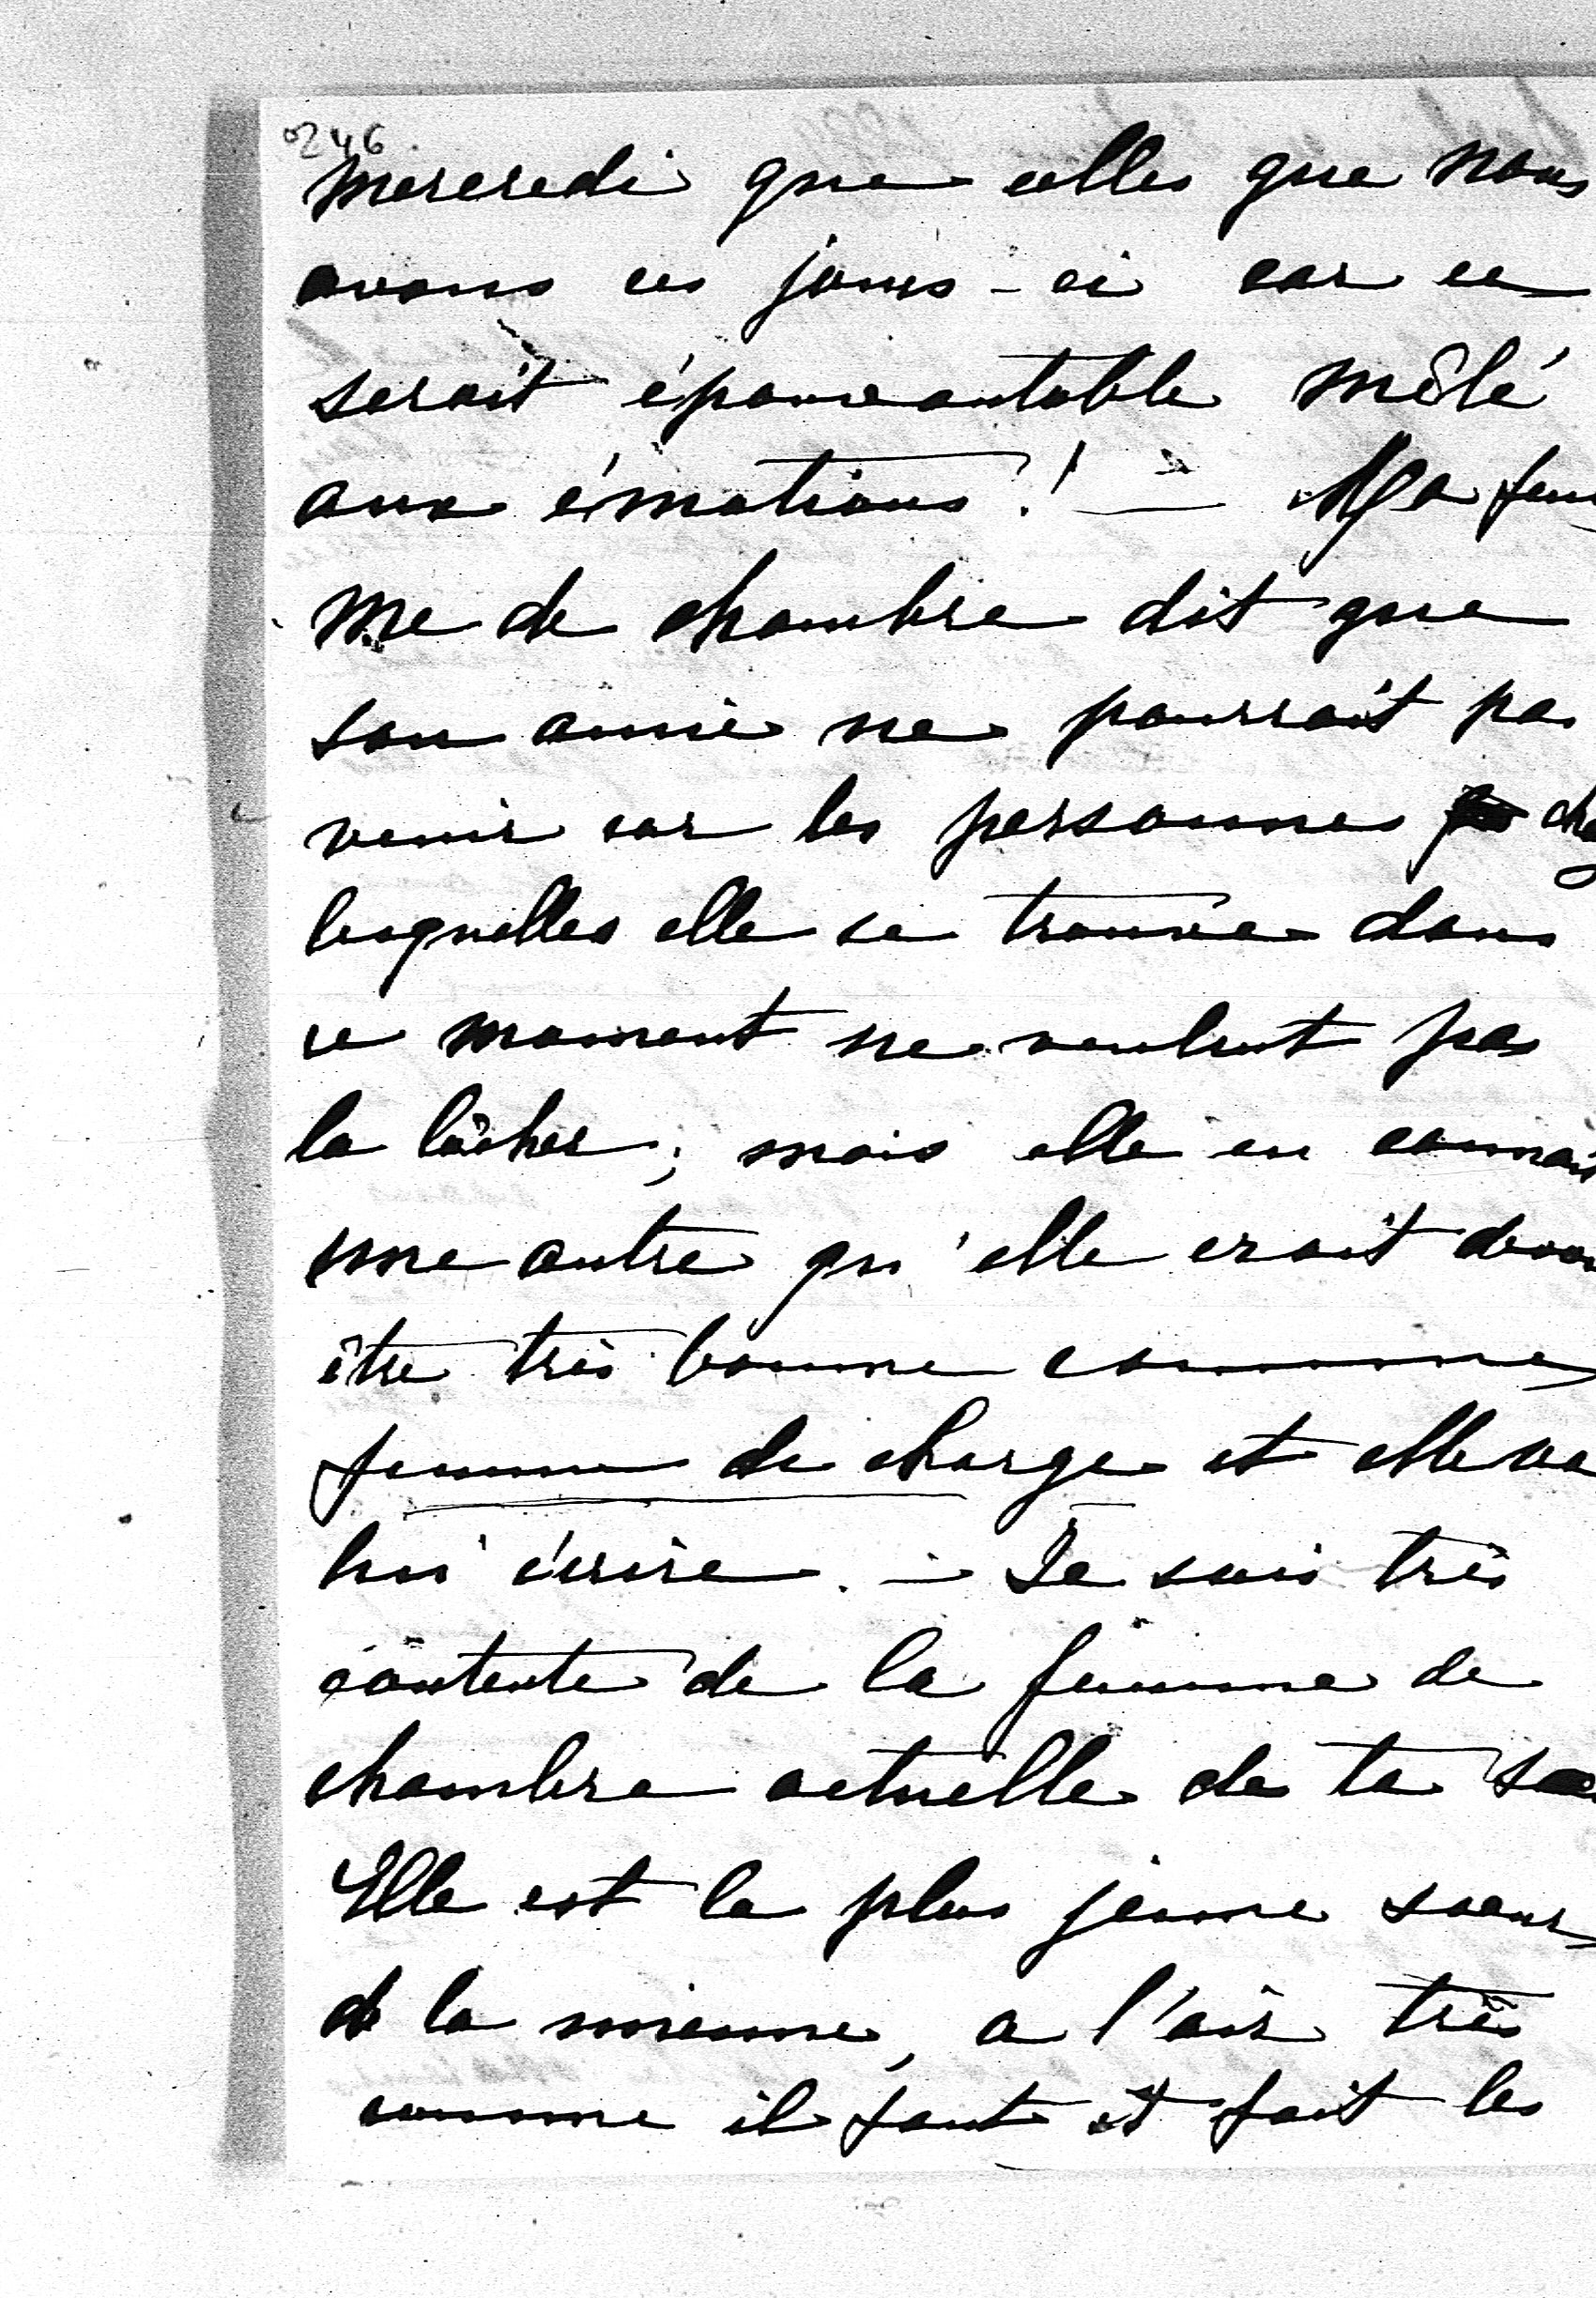 246
mercredi que celles que nous
avons ces jours-ci car ce
serait épouvantable mêlé
aux émotions ! — Ma fem
me de chambre dit que
son amie ne pourrait pas
venir car les personnes chez
lesquelles elle se trouve dans
ce moment ne veulent pas
la lâcher ; mais elle en connait
une autre qu'elle croit devoir
être très bonne comme
femme de charge et elle va
lui écrire. — Je suis très
contente de la femme de
chambre actuelle de ta
Elle est la plus jeune soeur
de la mienne, a l'air très
comme il faut et fait les